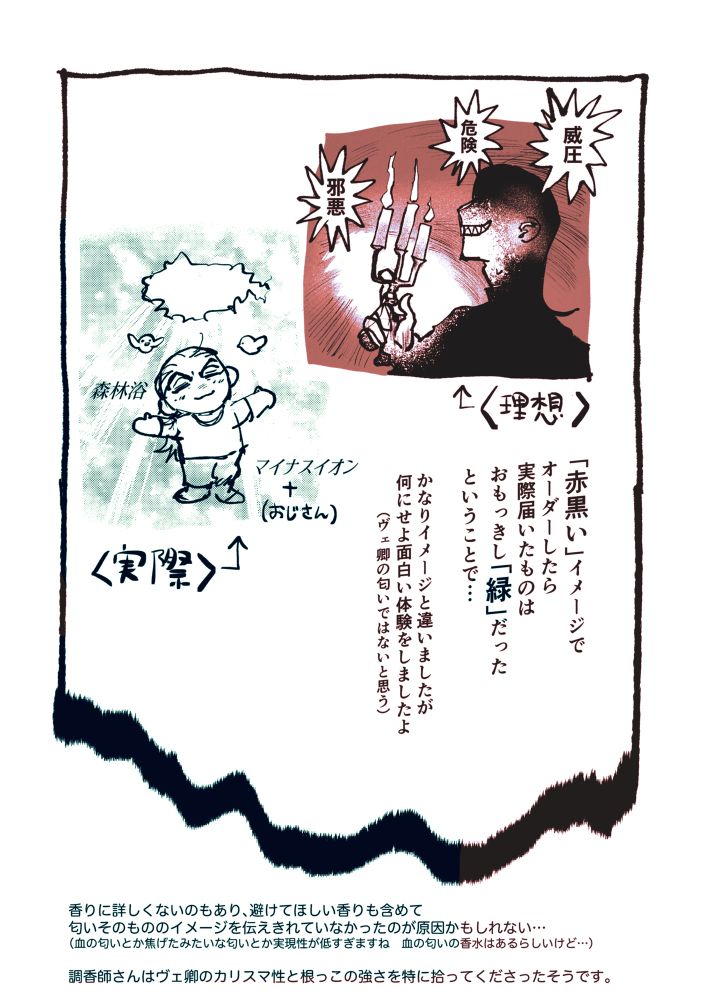 威圧
危険
邪悪
〈理想〉
森林浴
マイナスイオン
+
(おじさん)
〈実際〉
「赤黒い」イメージで
オーダーしたら
実際届いたものは
おもっきし「緑」だった
ということで…
かなりイメージと違いましたが
何にせよ面白い体験をしましたよ
(ヴェ卿の匂いではないと思う)
香りに詳しくないのもあり、避けてほしい香りも含めて
匂いそのもののイメージを伝えきれていなかったのが原因かもしれない…
(血の匂いとか焦げたみたいな匂いとか実現性が低すぎますね　血の匂いの香水はあるらしいけど…)
調香師さんはヴェ卿のカリスマ性と根っこの強さを特に拾ってくださったそうです。